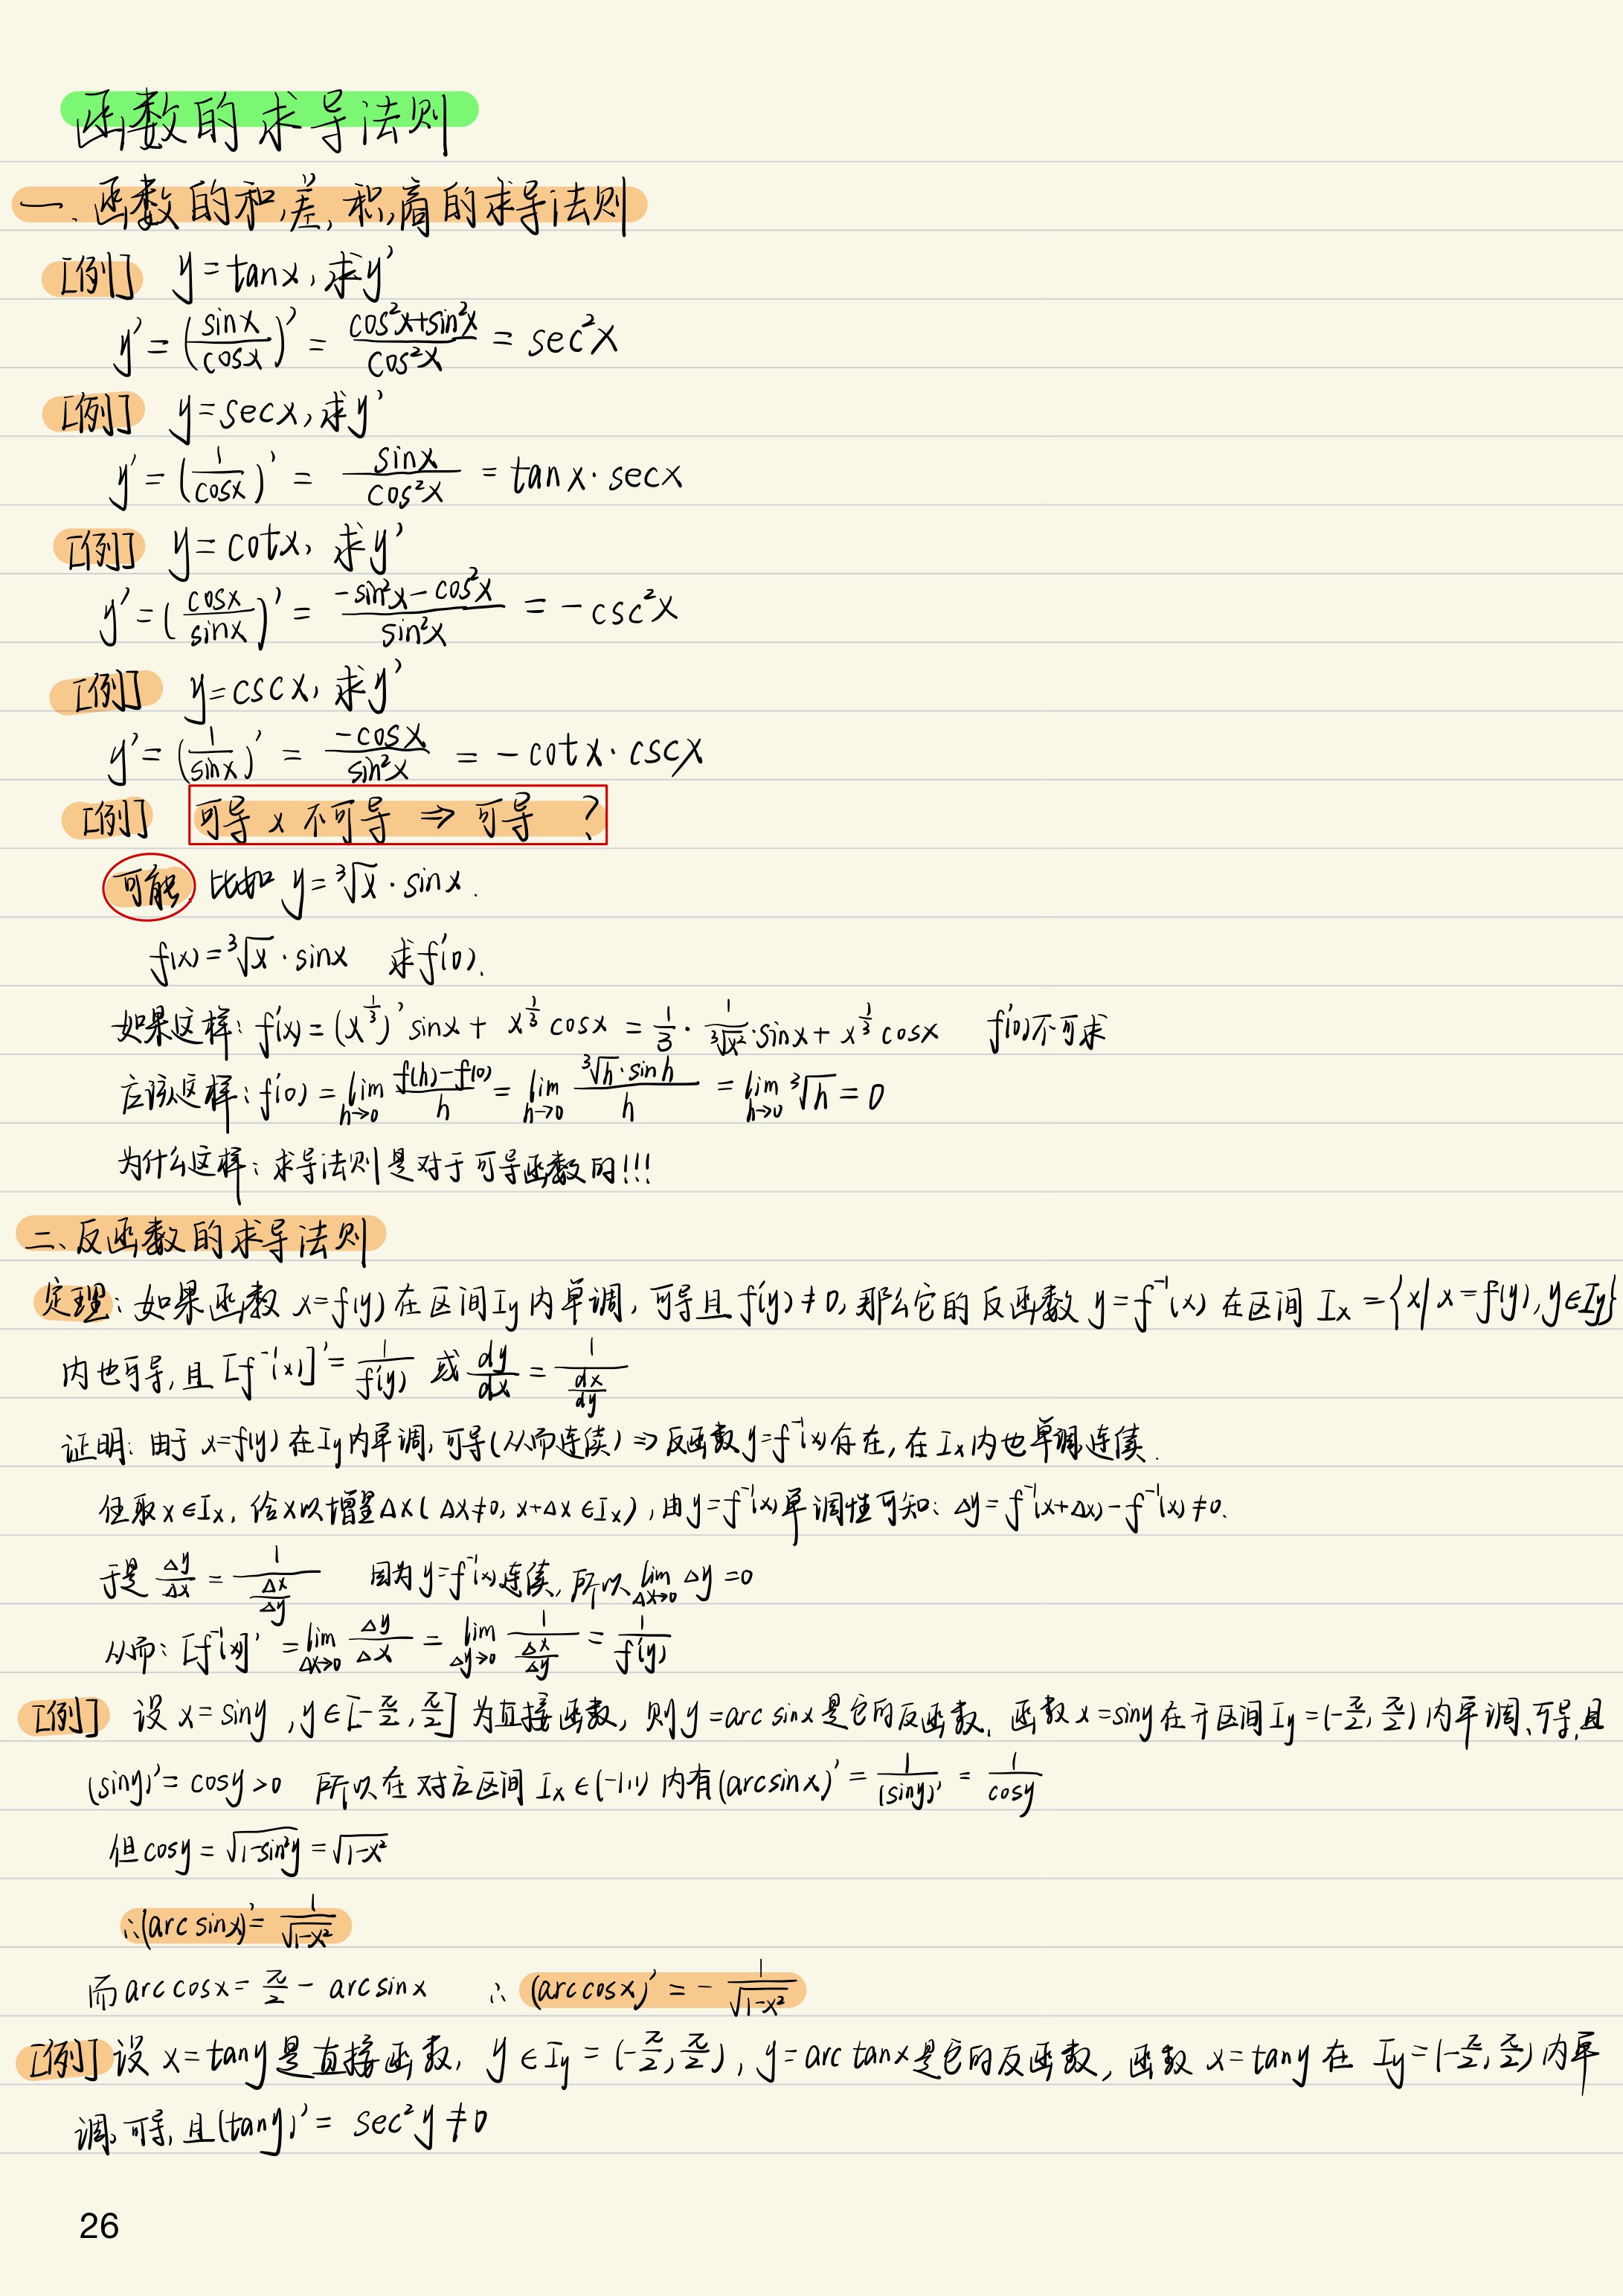 函数的求导法则
一、函数的和,差,积,商的求导法则
[例] y=tanx, 求y'
y' = (sinx/cosx)' = (cos²x+sin²x)/cos²x = sec²x
[例] y=secx, 求y'
y' = (1/cosx)' = sinx/cos²x = tanx·secx
[例] y=cotx, 求y'
y' = (cosx/sinx)' = (-sin²x-cos²x)/sin²x = -csc²x
[例] y=cscx, 求y'
y' = (1/sinx)' = -cosx/sin²x = -cotx·cscx
[例] 可导 x 不可导 ⇒ 可导 ?
可能. 比如 y=³√x·sinx.
f(x)=³√x·sinx 求f'(0).
如果这样: f'(x) = (x^(1/3))' sinx + x^(1/3) cosx = 1/3 · 1/³√x² · sinx + x^(1/3) cosx f'(0)不可求
应该这样: f'(0) = lim(h→0) (f(h)-f(0))/h = lim(h→0) (³√h·sinh)/h = lim(h→0) ³√h = 0
为什么这样: 求导法则是对于可导函数的!!!
二、反函数的求导法则
定理: 如果函数 x=f(y) 在区间Iy内单调, 可导且 f'(y)≠0, 那么它的反函数 y=f⁻¹(x) 在区间 Ix={x|x=f(y), y∈Iy}
内也可导, 且 [f⁻¹(x)]' = 1/f'(y) 或 dy/dx = 1/(dx/dy)
证明: 由于 x=f(y) 在Iy内单调, 可导(从而连续) ⇒ 反函数 y=f⁻¹(x)存在, 在 Ix内也单调连续.
任取 x∈Ix, 给x以增量Δx(Δx≠0, x+Δx∈Ix), 由y=f⁻¹(x)单调性可知: Δy=f⁻¹(x+Δx)-f⁻¹(x)≠0.
于是 Δy/Δx = 1/(Δx/Δy) 因为 y=f⁻¹(x)连续, 所以 lim(Δx→0) Δy=0
从而: [f⁻¹(x)]' = lim(Δx→0) Δy/Δx = lim(Δy→0) 1/(Δx/Δy) = 1/f'(y)
[例] 设 x=siny, y∈[-π/2, π/2] 为直接函数, 则y=arcsinx是它的反函数. 函数x=siny在开区间Iy=(-π/2, π/2)内单调、可导,且
(siny)'=cosy>0 所以在对应区间 Ix∈(-1,1) 内有(arcsinx)' = 1/(siny)' = 1/cosy
但cosy=√(1-sin²y)=√(1-x²)
∴(arcsinx)'=1/√(1-x²)
而arccosx=π/2-arcsinx ∴ (arccosx)'=-1/√(1-x²)
[例] 设 x=tany是直接函数, y∈Iy=(-π/2, π/2), y=arctanx是它的反函数, 函数 x=tany在 Iy=(-π/2, π/2)内单
调、可导, 且(tany)'=sec²y≠0
26